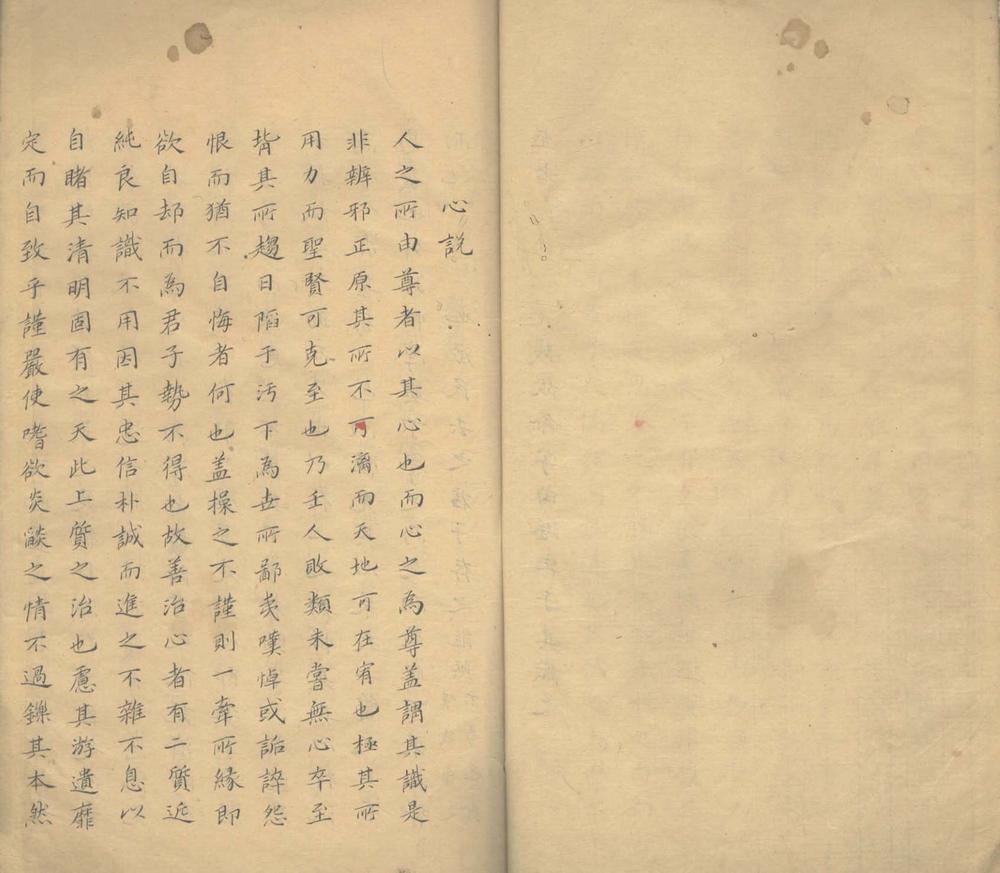 心説
人之所由尊者以其心也而心之為尊盖謂其識是
非辨邪正原其所不可漓而天地可在宥也極其所
用力而聖賢可克至也乃壬人敗類未嘗無心卒至
背其所趨日陷于汚下為世所鄙夷嘆悼或詬誶怨
恨而猶不自悔者何也盖操之不謹則一牽所緣即
欲自却而為君子勢不得也故善治心者有二質近
純良知識不用因其忠信朴誠而進之不雜不息以
自睹其清明固有之天此上質之治也慮其游遺靡
定而自致乎謹嚴使嗜欲炎燄之情不過鑠其本然